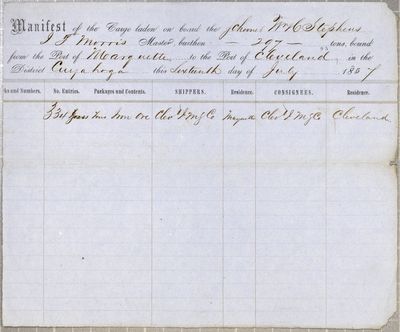 Manifest of the Cargo laden on board the Schooner Wm C Stephens
J F Morris Master, burthen 295 tons, bound
from the Port of Marquette to the Port of Cleveland in the
District Cuyahoga this Sixteenth day of July 1857
ks and Numbers. No. Entries. Packages and Contents. SHIPPERS. Residence. CONSIGNEES. Residence.
334 Gross Tons Iron Ore Clev I M g Co Marquette Clev I M g Co Cleveland